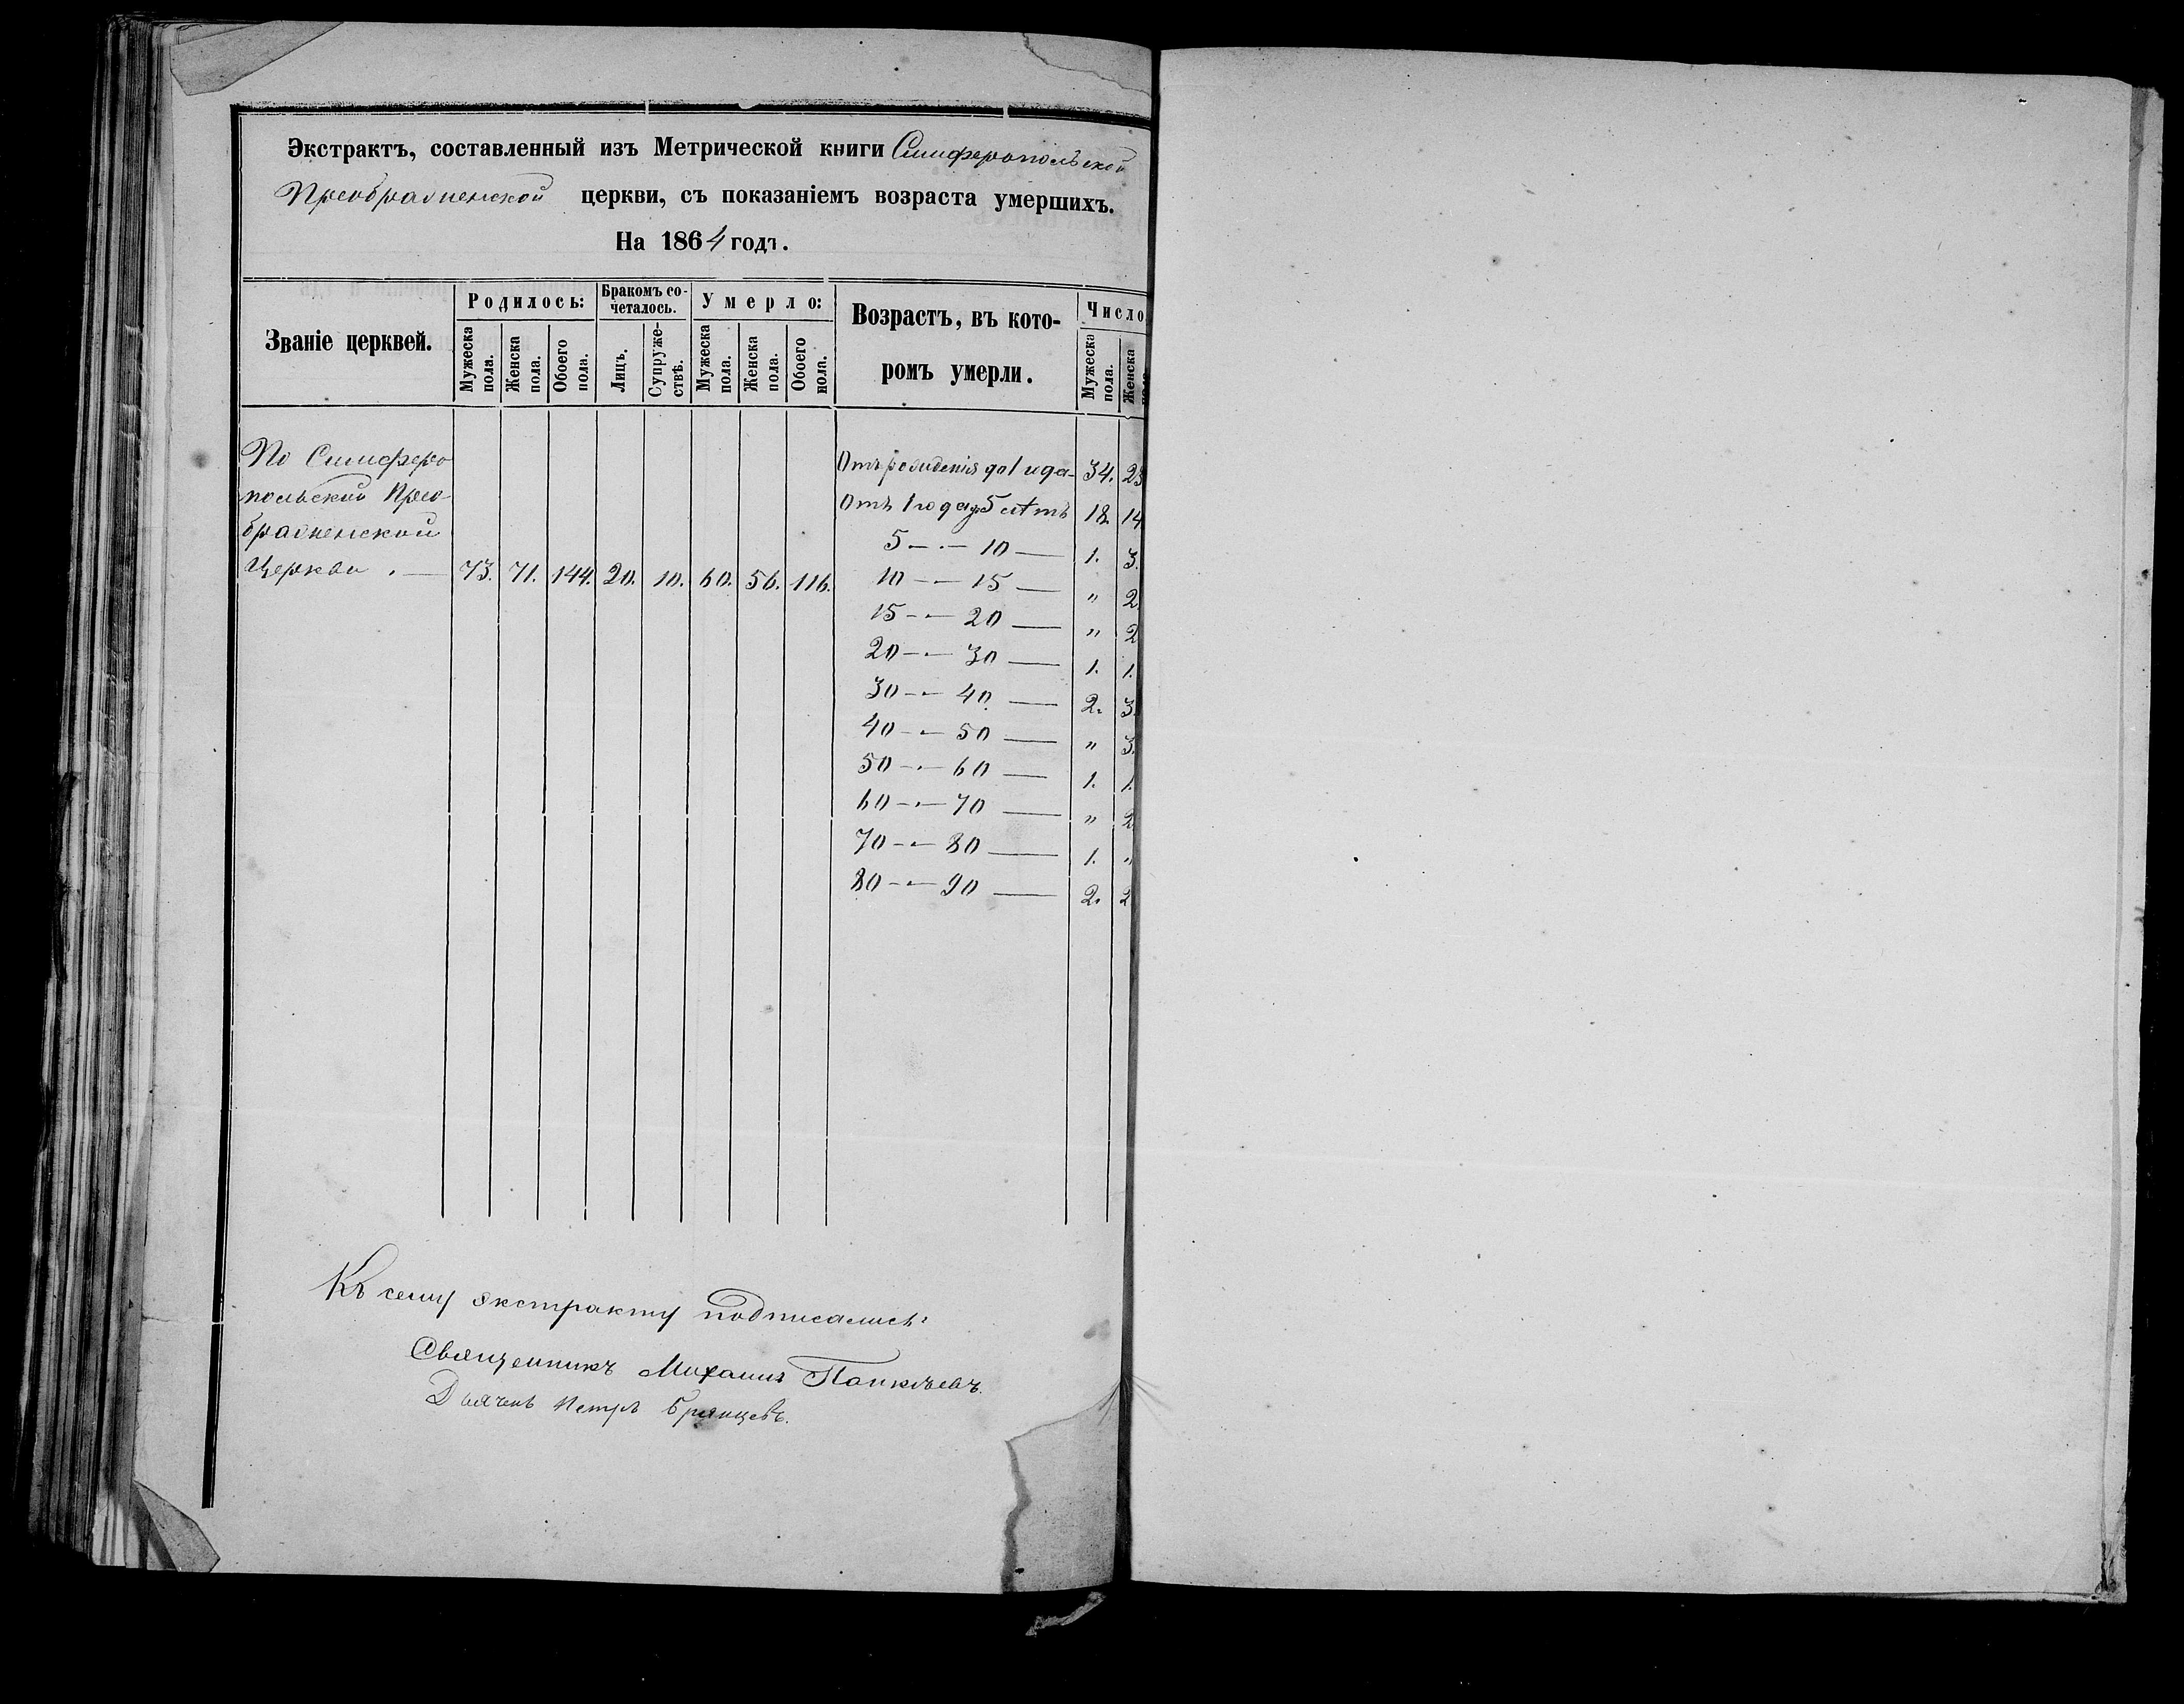 Экстрактъ, составленный изъ Метрической книги Симферопольской
Преображенской церкви, съ показаніемъ возраста умершихъ.
На 1864 годъ.
Званіе церквей.
Родилось:
Мужеска пола.
Женска пола.
Обоего пола.
Бракомъ со-
четалось.
Лицъ.
Супруже-
ствъ.
Умерло:
Мужеска пола.
Женска пола.
Обоего пола.
Возрастъ, въ кото-
ромъ умерли.
Число
Мужеска пола.
Женска пола.
По Симферо
польской Прео-
браженской
Церкви . — 73. 71. 144. 20. 10. 60. 56. 116.
Отъ рожденія до 1 года — 34. 23
Отъ 1 года до 5 лѣтъ 18. 14
5 — 10 — 1. 3.
10 — 15 — " 2.
15 — 20 — " 2
20 — 30 — 1. 1.
30 — 40 — 2. 3.
40 — 50 — " 3.
50 — 60 — 1. 1.
60 — 70 — " 2.
70 — 80 — 1. "
80 — 90 — 2. 2
Къ сему экстракту подписались:
Священникъ Михаилъ
Дьячекъ Петръ Брянцевъ.